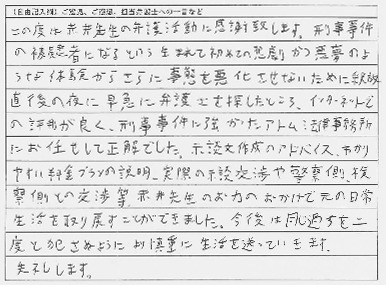 (自由記入欄)ご意見、ご感想、担当弁護士への一言など
この度は赤井先生の弁護活動に感謝致します。刑事事件
の被疑者になるという生まれて初めての悲劇から悪夢のよ
うな体験からさらに事態を悪化させないために釈放
直後の夜に早急に弁護士を探したところ、インターネットで
の評判が良く、刑事事件に強かったアトム法律事務所
にお任せして正解でした。示談文作成のアドバイス、わかり
やすい料金プランの説明、実際の示談交渉や警察側、検
察側との交渉等、赤井先生のお力のおかげで元の日常
生活を取り戻すことができました。今後は同じ過ちを二
度と犯さぬように慎重に生活を送っていきます。
失礼します。